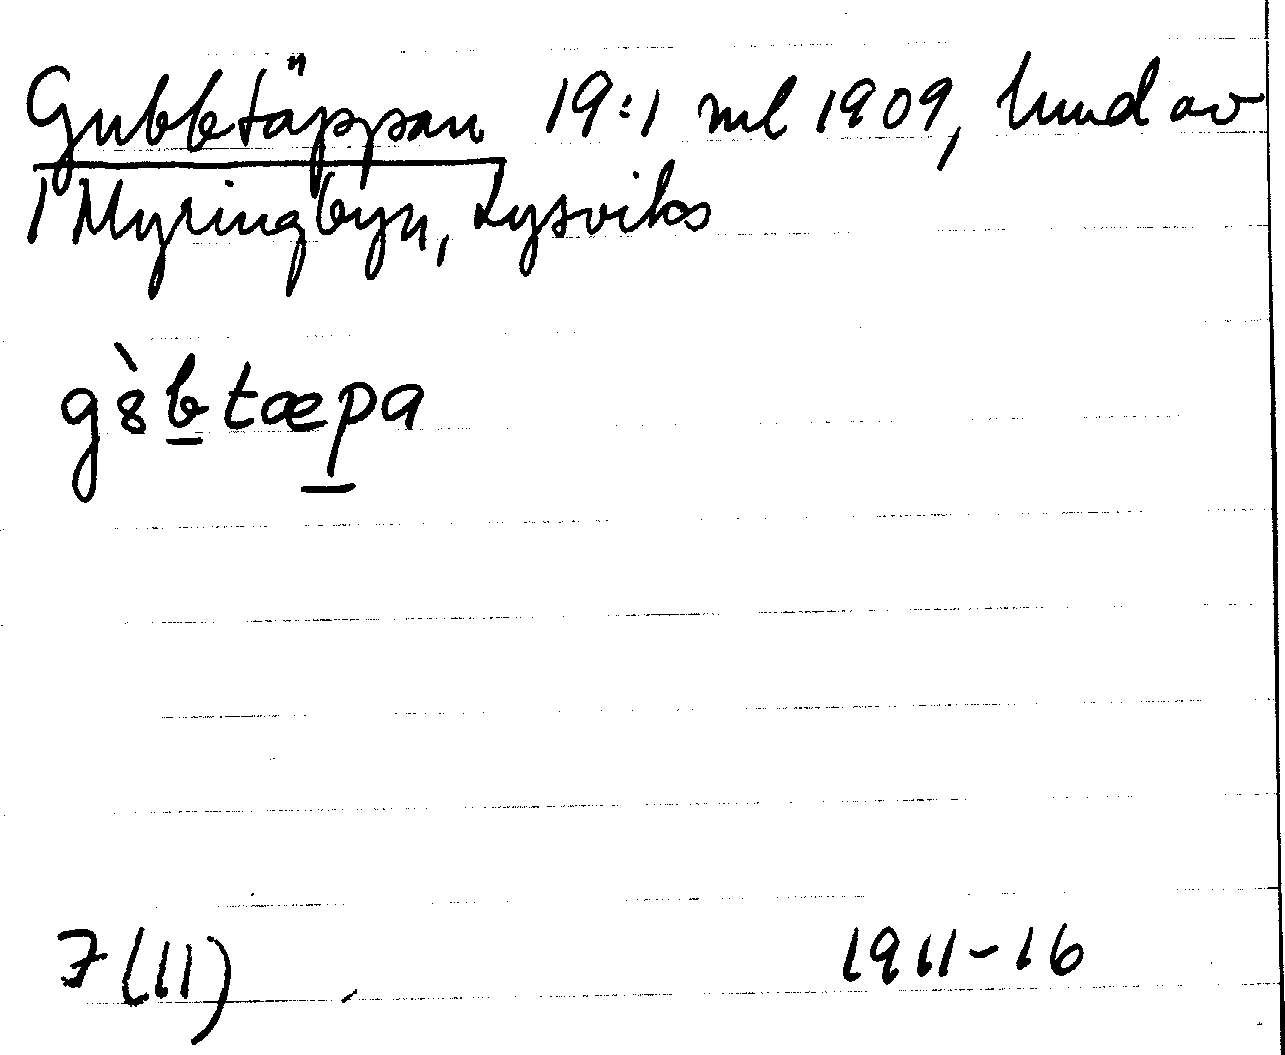 Gubbetäppan 19:1 ml 1909, hund av
1 Myringbyn, Lysviks
gɞ̀b̲tæp̲a
7(11)
1911-16